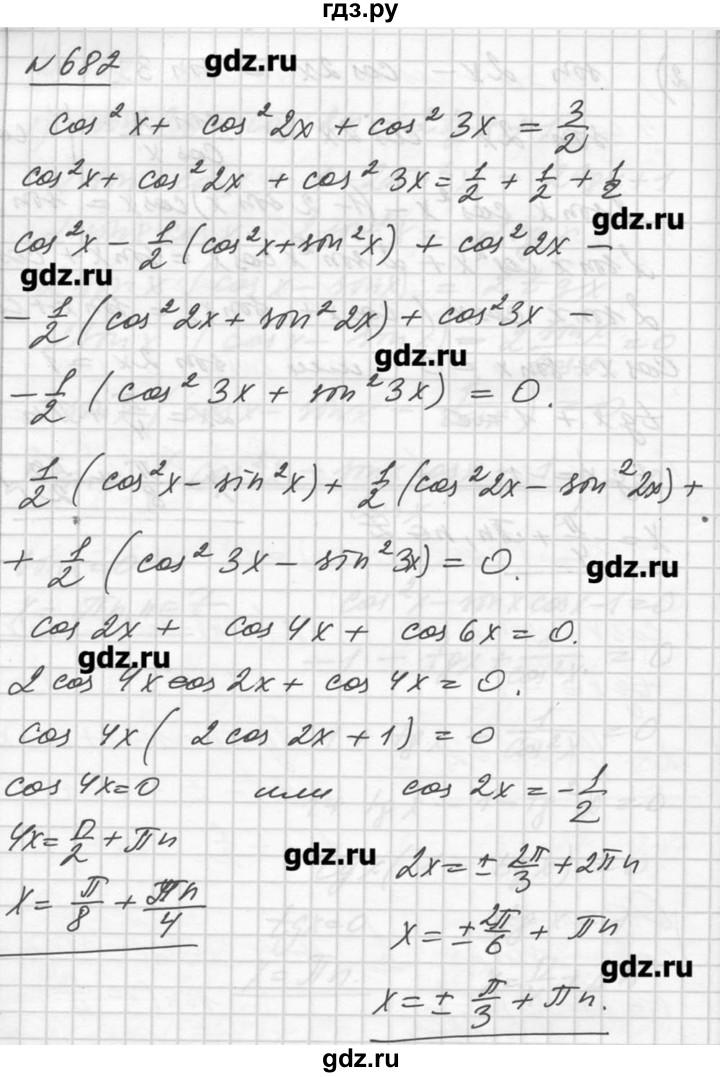 гдз.ру
№682 gdz.ru
cos² x + cos² 2x + cos² 3x = 3/2
cos²x + cos² 2x + cos² 3x = 1/2 + 1/2 + 1/2
gdz.ru
cos²x - 1/2 (cos²x + sin²x) + cos² 2x -
gdz.ru
- 1/2 (cos² 2x + sin² 2x) + cos² 3x -
gdz.ru
- 1/2 (cos² 3x + sin² 3x) = 0.
1/2 (cos²x - sin²x) + 1/2 (cos² 2x - sin² 2x) +
+ 1/2 (cos² 3x - sin² 3x) = 0.
gdz.ru
cos 2x + cos 4x + cos 6x = 0.
gdz.ru
2 cos 4x cos 2x + cos 4x = 0.
cos 4x ( 2 cos 2x + 1) = 0
cos 4x = 0 или cos 2x = - 1/2
4x = π/2 + πn
gdz.ru
2x = ± 2π/3 + 2πn
x = π/8 + πn/4
x = ± 2π/6 + πn
gdz.ru
x = ± π/3 + πn.
gdz.ru